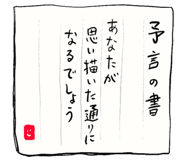 予言の書
あなたが
思い描いた通りに
なるでしょう